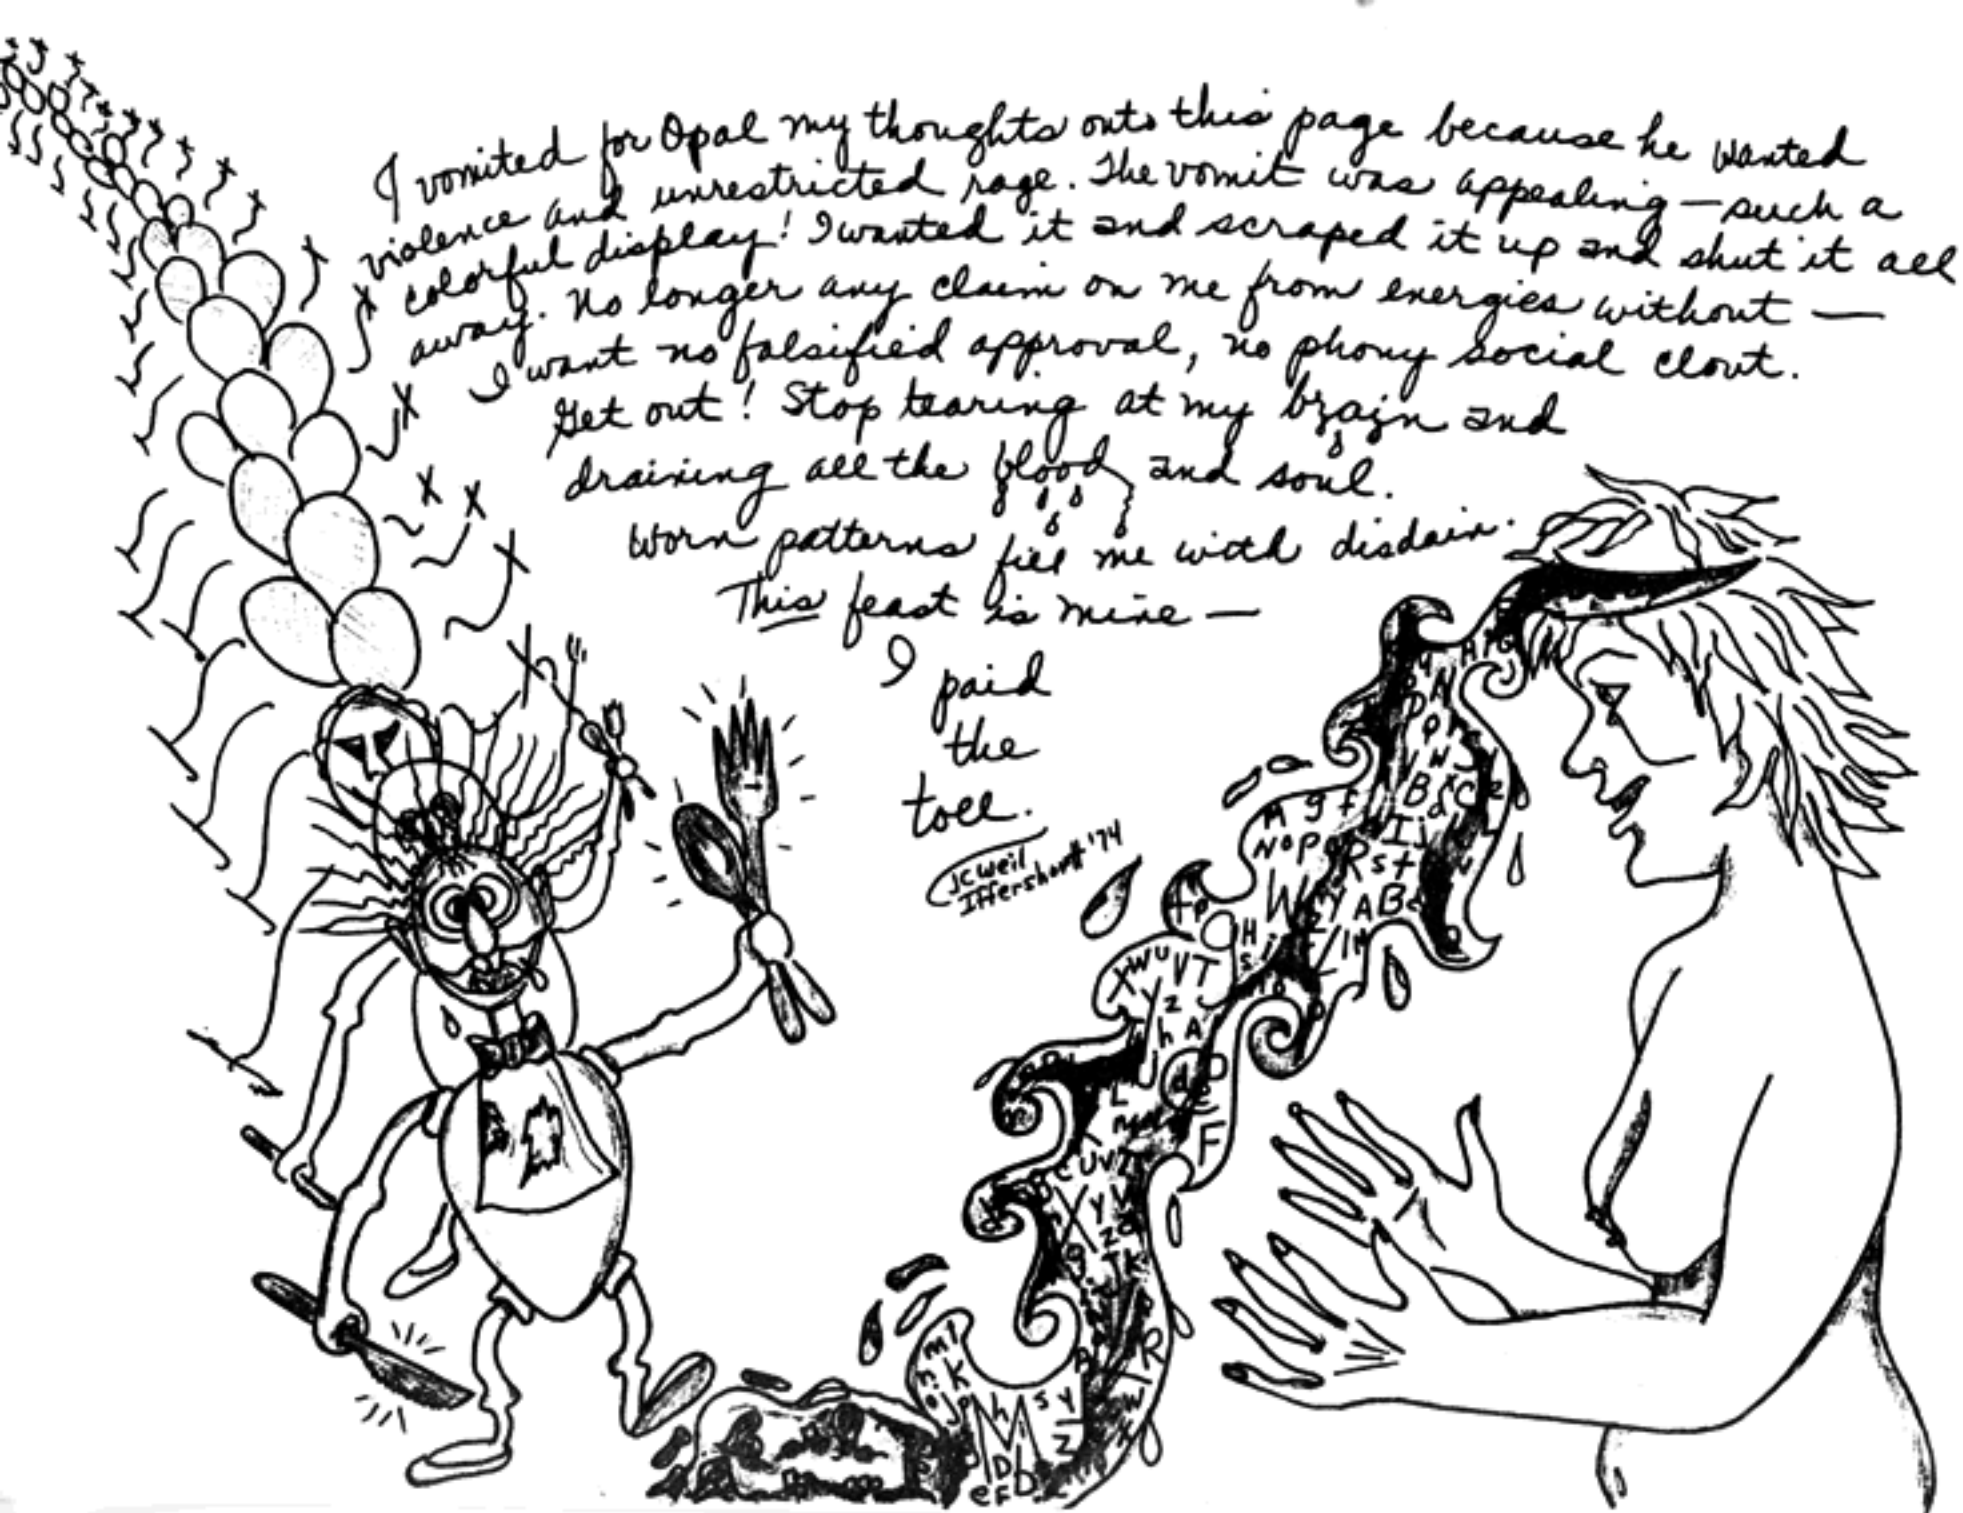 I vomited for Opal my thoughts onto this page because he wanted
violence and unrestricted rage. The vomit was appealing — such a
colorful display! I wanted it and scraped it up and shut it all
away. No longer any claim on me from energies without —
I want no falsified approval, no phony social clout.
Get out! Stop tearing at my brain and
draining all the blood and soul.
Worn patterns fill me with disdain.
This feast is mine —
I paid
the
toll.
JC Weil
'74